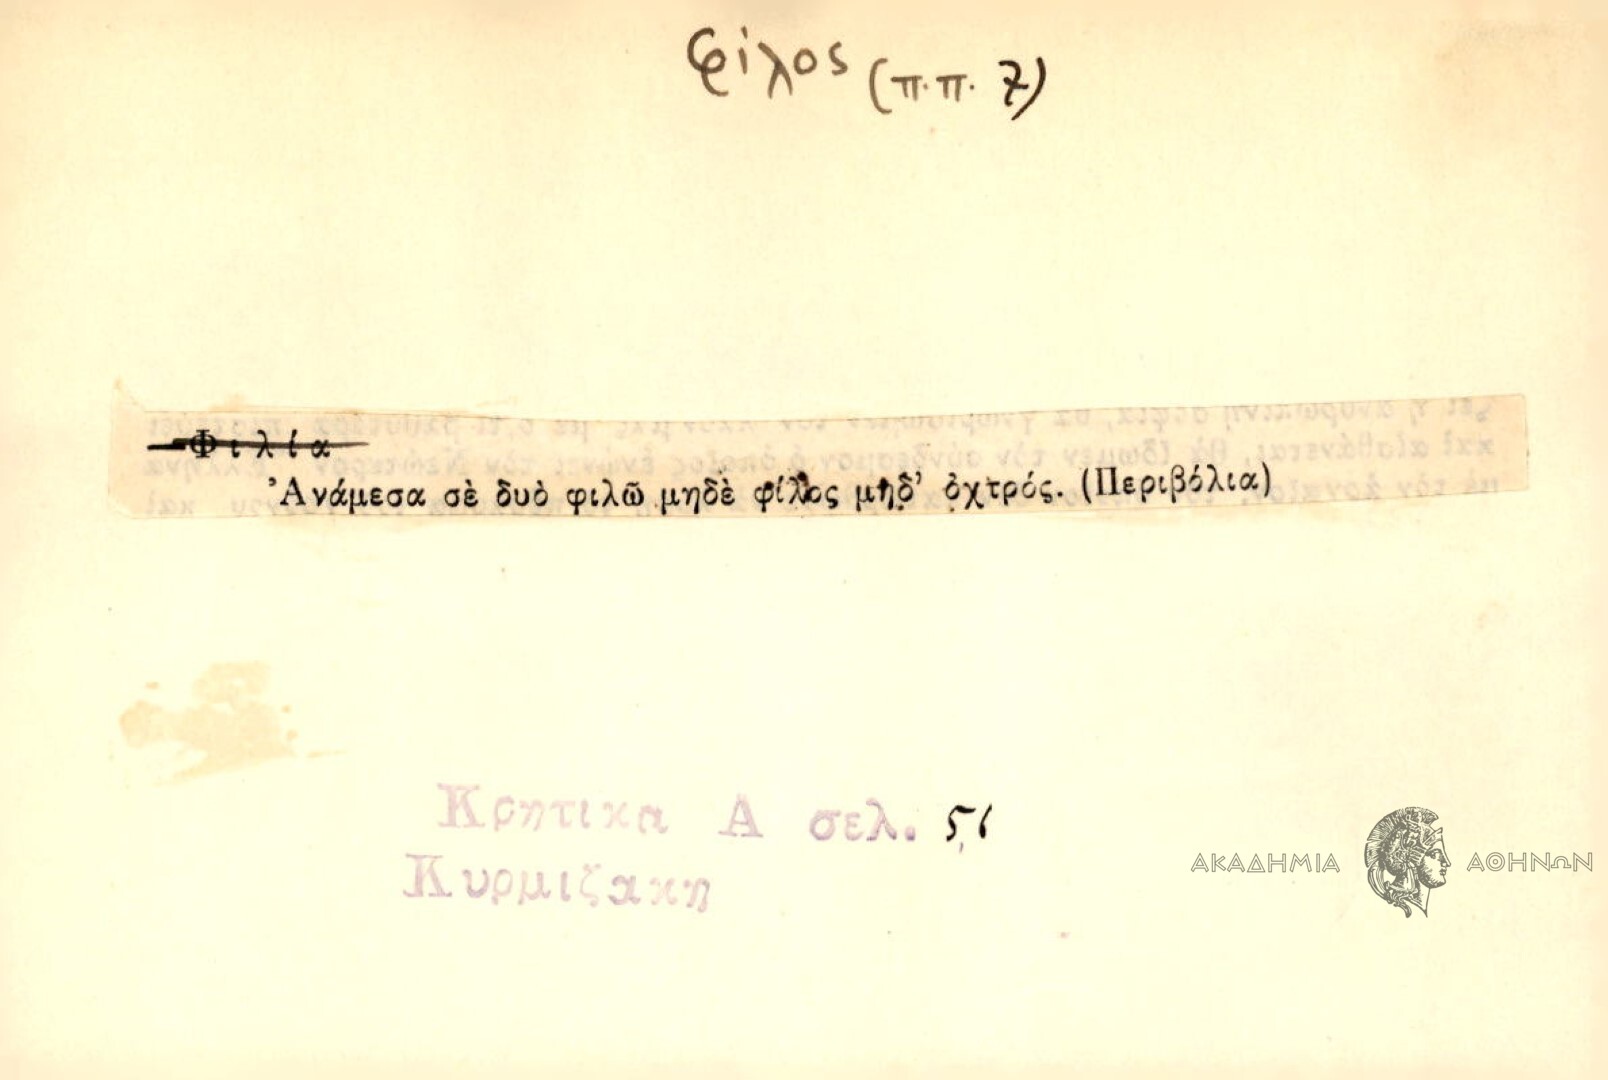 φίλος (π.π. 7)
Φιλία
Ἀνάμεσα σὲ δυὸ φιλῶ μηδὲ φίλος μηδ' ὀχτρός. (Περιβόλια)
Κρητικα Α σελ. 51
Κυρμιζακη
ΑΚΑΔΗΜΙΑ ΑΘΗΝΩΝ